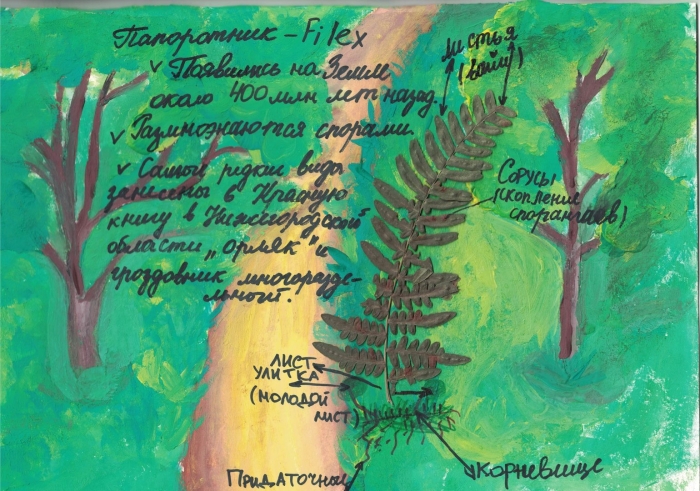 Папоротник – Filex
v Появились на Земле
около 400 млн лет назад.
v Размножаются спорами.
v Самые редкие виды
занесены в Красную
книгу в Нижегородской
области „орляк" и
гроздовник многоразде-
льный.
Листья
(вайи)
Сорусы
(скопление
спорангиев)
лист
улитка
(молодой
лист)
Придаточный
корневище